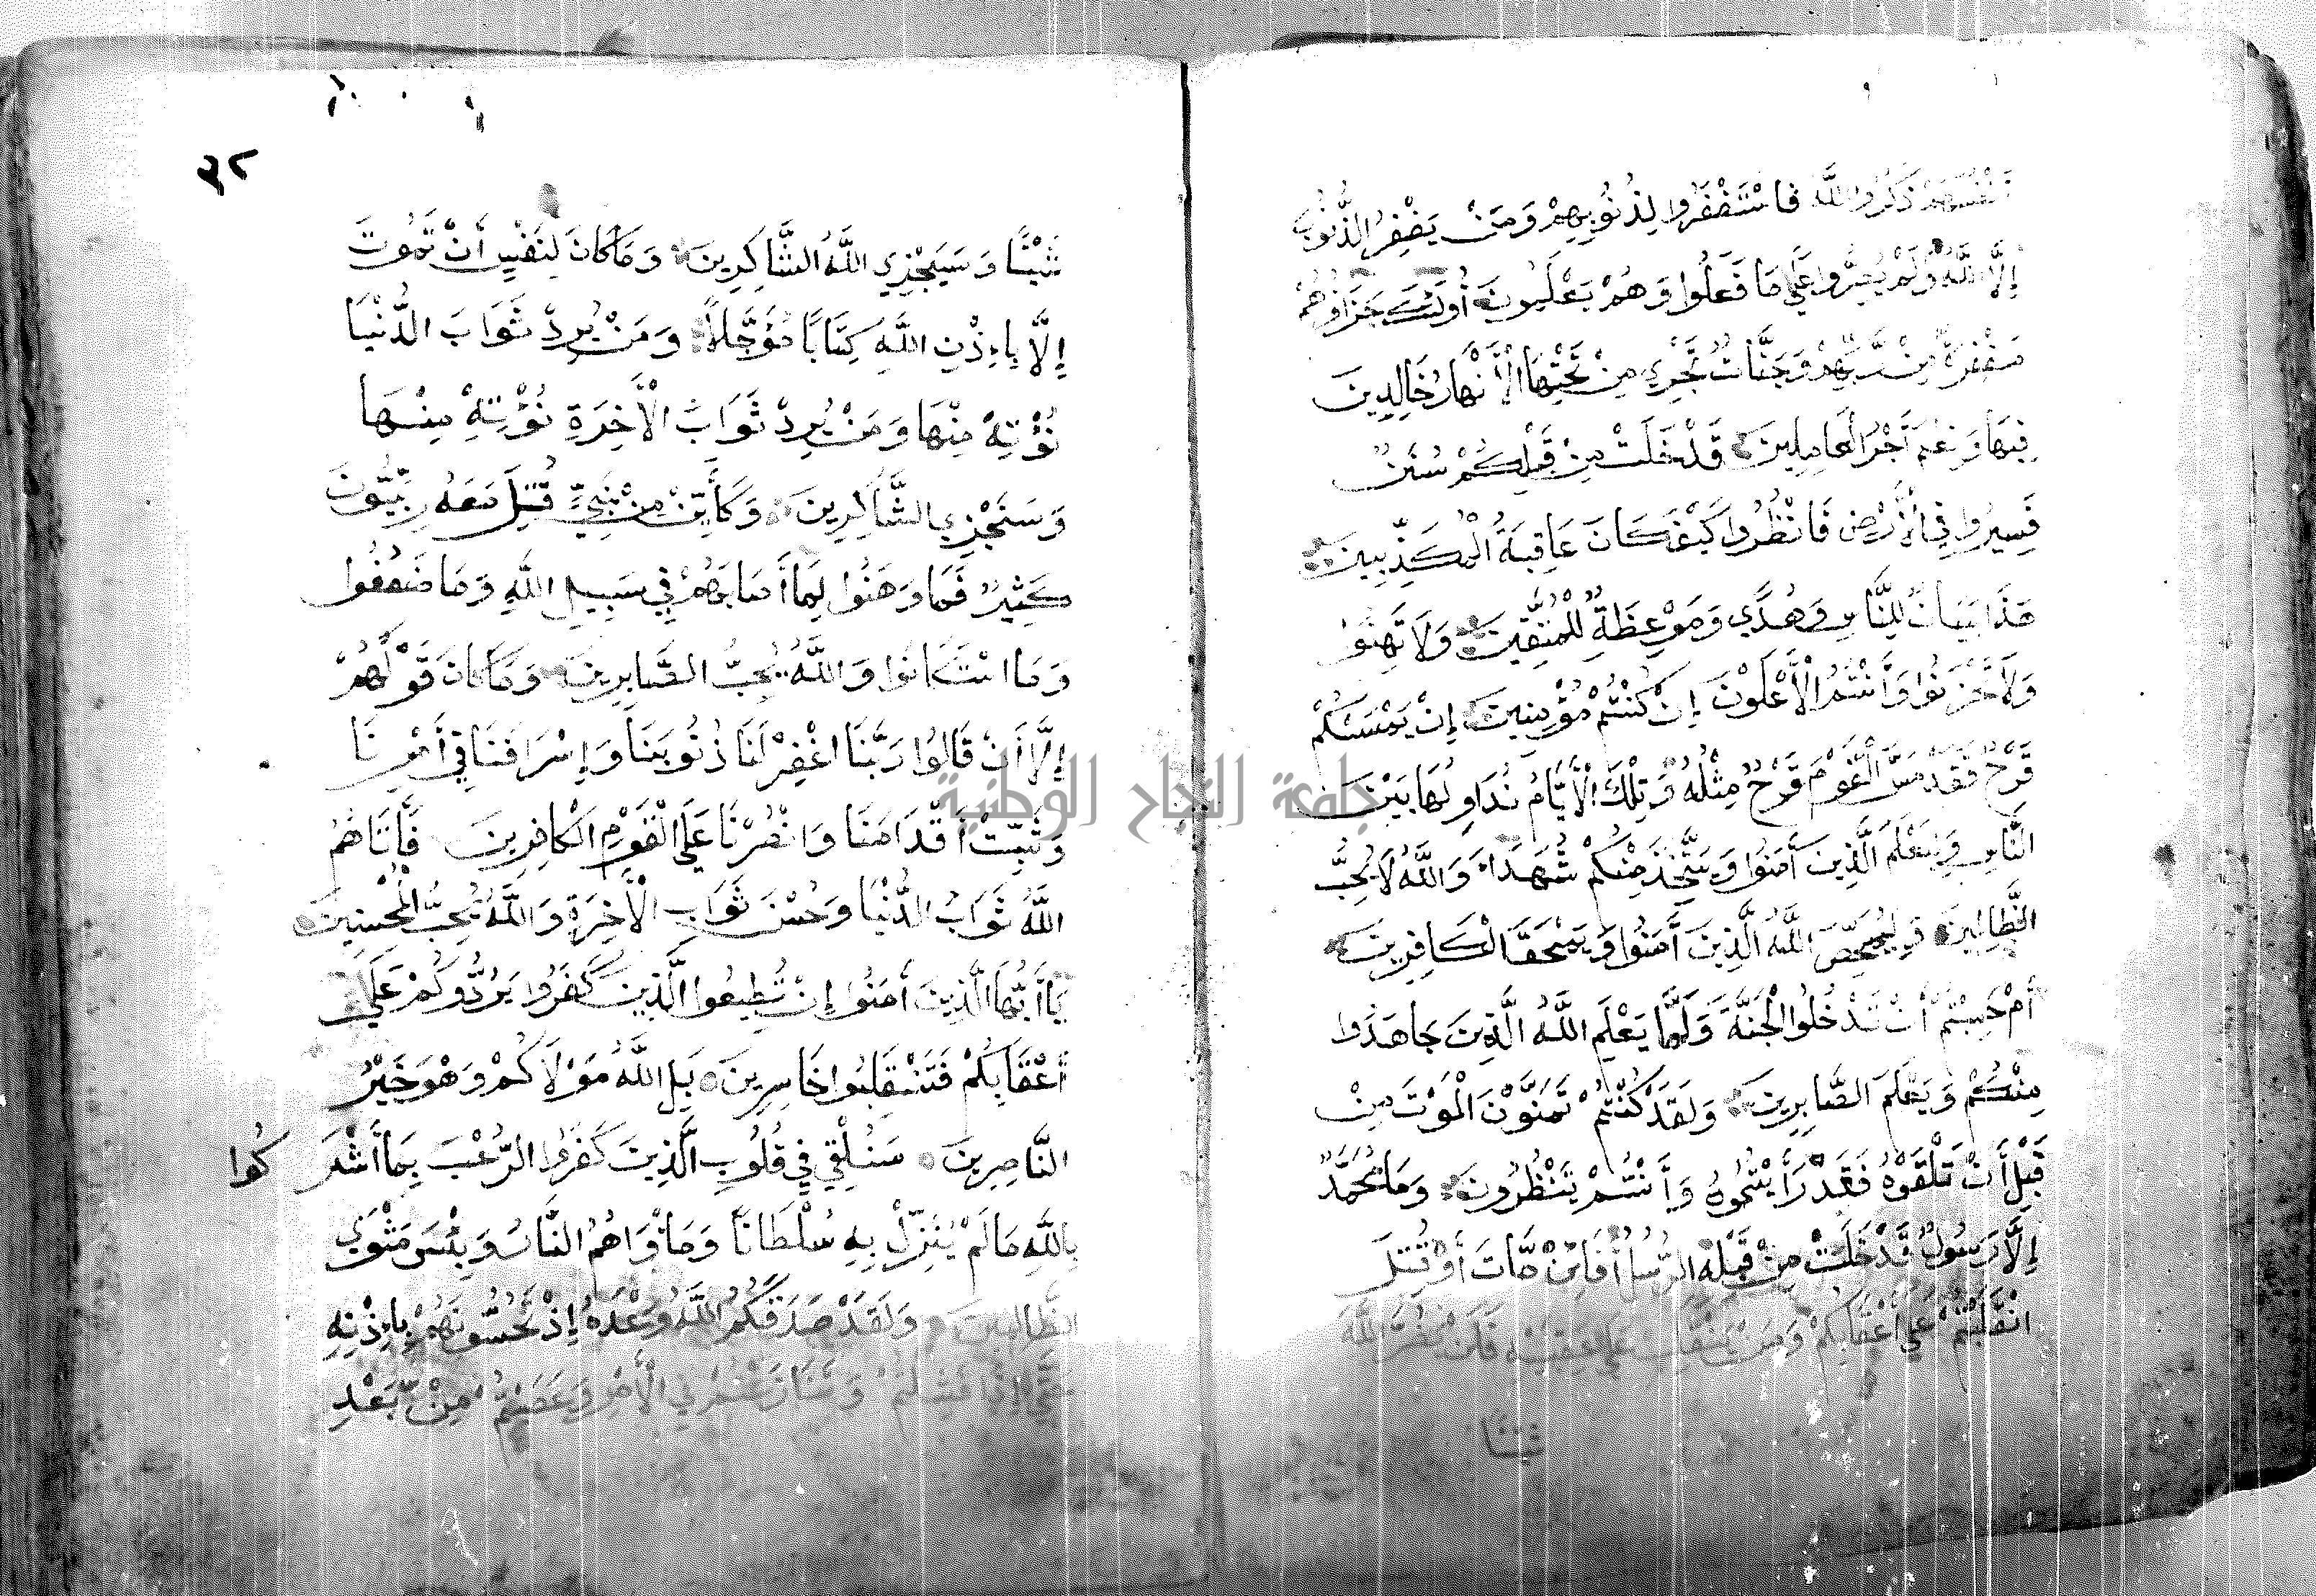 نْفُسَهُمْ ذَكَرُوا اللَّهَ فَاسْتَغْفَرُوا لِذُنُوبِهِمْ وَمَنْ يَغْفِرُ الذُّنُوبَ
إِلَّا اللَّهُ وَلَمْ يُصِرُّوا عَلَى مَا فَعَلُوا وَهُمْ يَعْلَمُونَ أُولَئِكَ جَزَاؤُهُمْ
مَغْفِرَةٌ مِنْ رَبِّهِمْ وَجَنَّاتٌ تَجْرِي مِنْ تَحْتِهَا الْأَنْهَارُ خَالِدِينَ
فِيهَا وَنِعْمَ أَجْرُ الْعَامِلِينَ قَدْ خَلَتْ مِنْ قَبْلِكُمْ سُنَنٌ
فَسِيرُوا فِي الْأَرْضِ فَانْظُرُوا كَيْفَ كَانَ عَاقِبَةُ الْمُكَذِّبِينَ
هَذَا بَيَانٌ لِلنَّاسِ وَهُدًى وَمَوْعِظَةٌ لِلْمُتَّقِينَ وَلَا تَهِنُوا
وَلَا تَحْزَنُوا وَأَنْتُمُ الْأَعْلَوْنَ إِنْ كُنْتُمْ مُؤْمِنِينَ إِنْ يَمْسَسْكُمْ
قَرْحٌ فَقَدْ مَسَّ الْقَوْمَ قَرْحٌ مِثْلُهُ وَتِلْكَ الْأَيَّامُ نُدَاوِلُهَا بَيْنَ
النَّاسِ وَلِيَعْلَمَ اللَّهُ الَّذِينَ أَمَنُوا وَيَتَّخِذَ مِنْكُمْ شُهَدَاءَ وَاللَّهُ لَا يُحِبُّ
الظَّالِمِينَ وَلِيُمَحِّصَ اللَّهُ الَّذِينَ أَمَنُوا وَيَمْحَقَ الْكَافِرِينَ
أَمْ حَسِبْتُمْ أَنْ تَدْخُلُوا الْجَنَّةَ وَلَمَّا يَعْلَمِ اللَّهُ الَّذِينَ جَاهَدُوا
مِنْكُمْ وَيَعْلَمَ الصَّابِرِينَ وَلَقَدْ كُنْتُمْ تَمَنَّوْنَ الْمَوْتَ مِنْ
قَبْلِ أَنْ تَلْقَوْهُ فَقَدْ رَأَيْتُمُوهُ وَأَنْتُمْ تَنْظُرُونَ وَمَا مُحَمَّدٌ
إِلَّا رَسُولٌ قَدْ خَلَتْ مِنْ قَبْلِهِ الرُّسُلُ أَفَإِنْ مَاتَ أَوْ قُتِلَ
انْقَلَبْتُمْ عَلَى أَعْقَابِكُمْ وَمَنْ يَنْقَلِبْ عَلَى عَقِبَيْهِ فَلَنْ يَضُرَّ اللَّهَ
شيئا
٣٢
شَيْئًا وَسَيَجْزِي اللَّهُ الشَّاكِرِينَ وَمَا كَانَ لِنَفْسٍ أَنْ تَمُوتَ
إِلَّا بِإِذْنِ اللَّهِ كِتَابًا مُؤَجَّلًا وَمَنْ يُرِدْ ثَوَابَ الدُّنْيَا
نُؤْتِهِ مِنْهَا وَمَنْ يُرِدْ ثَوَابَ الْأَخِرَةِ نُؤْتِهِ مِنْهَا
وَسَنَجْزِي الشَّاكِرِينَ وَكَأَيِّنْ مِنْ نَبِيٍّ قُتِلَ مَعَهُ رِبِّيُّونَ
كَثِيرٌ فَمَا وَهَنُوا لِمَا أَصَابَهُمْ فِي سَبِيلِ اللَّهِ وَمَا ضَعُفُوا
وَمَا اسْتَكَانُوا وَاللَّهُ يُحِبُّ الصَّابِرِينَ وَمَا كَانَ قَوْلَهُمْ
إِلَّا أَنْ قَالُوا رَبَّنَا اغْفِرْ لَنَا ذُنُوبَنَا وَإِسْرَافَنَا فِي أَمْرِنَا
وَثَبِّتْ أَقْدَامَنَا وَانْصُرْنَا عَلَى الْقَوْمِ الْكَافِرِينَ فَأَتَاهُمُ
اللَّهُ ثَوَابَ الدُّنْيَا وَحُسْنَ ثَوَابِ الْأَخِرَةِ وَاللَّهُ يُحِبُّ الْمُحْسِنِينَ
يَا أَيُّهَا الَّذِينَ أَمَنُوا إِنْ تُطِيعُوا الَّذِينَ كَفَرُوا يَرُدُّوكُمْ عَلَى
أَعْقَابِكُمْ فَتَنْقَلِبُوا خَاسِرِينَ بَلِ اللَّهُ مَوْلَاكُمْ وَهُوَ خَيْرُ
النَّاصِرِينَ سَنُلْقِي فِي قُلُوبِ الَّذِينَ كَفَرُوا الرُّعْبَ بِمَا أَشْرَكُوا
بِاللَّهِ مَا لَمْ يُنَزِّلْ بِهِ سُلْطَانًا وَمَأْوَاهُمُ النَّارُ وَبِئْسَ مَثْوَى
الظَّالِمِينَ وَلَقَدْ صَدَقَكُمُ اللَّهُ وَعْدَهُ إِذْ تَحُسُّونَهُمْ بِإِذْنِهِ
حَتَّى إِذَا فَشِلْتُمْ وَتَنَازَعْتُمْ فِي الْأَمْرِ وَعَصَيْتُمْ مِنْ بَعْدِ
جامعة النجاح الوطنية